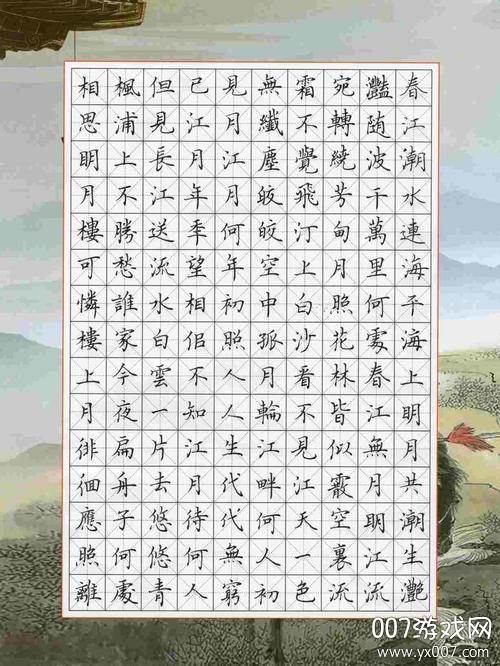 春江潮水連海平海上明月共潮生灧
灩随波千萬里何處春江無月明江流
宛轉繞芳甸月照花林皆似霰空裏流
霜不覺飛汀上白沙看不見江天一色
無纖塵皎皎空中孤月輪江畔何人初
見月江月何年初照人人生代代無窮
已江月年秊望相佀不知江月待何人
但見長江送流水白雲一片去悠悠青
楓浦上不勝愁誰家今夜扁舟子何處
相思明月樓可憐樓上月徘徊應照離
007游戏网
www.yx007.com